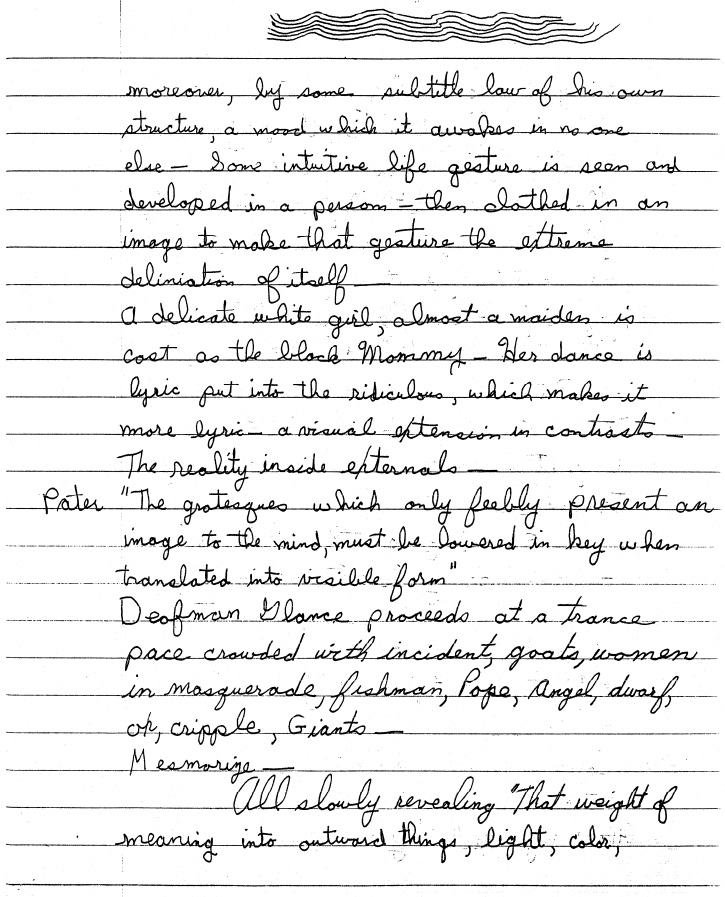 moreover, by some subtitle law of his own
structure, a mood which it awakes in no one
else — Some intuitive life gesture is seen and
developed in a person — then clothed in an
image to make that gesture the extreme
deliniation of itself —
A delicate white girl, almost a maiden is
cast as the black Mommy — Her dance is
lyric put into the ridiculous, which makes it
more lyric — a visual extension in contrasts —
The reality inside externals —
Pater "The grotesques which only feebly present an
image to the mind, must be lowered in key when
translated into visible form"
Deafman Glance proceeds at a trance
pace crowded with incident, goats, women
in masquerade, fishman, Pope, Angel, dwarf,
ox, cripple, Giants —
Mesmorize —
All slowly revealing "That weight of
meaning into outward things, light, color,